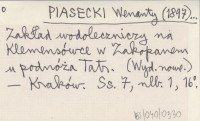 PIASECKI Wenanty (1897)...
Zakład wodoleczniczy na
Klemensówce w Zakopanem
u podnóża Tatr. (Wyd. now.)
— Kraków. Ss. 7, nlb. 1, 16°.